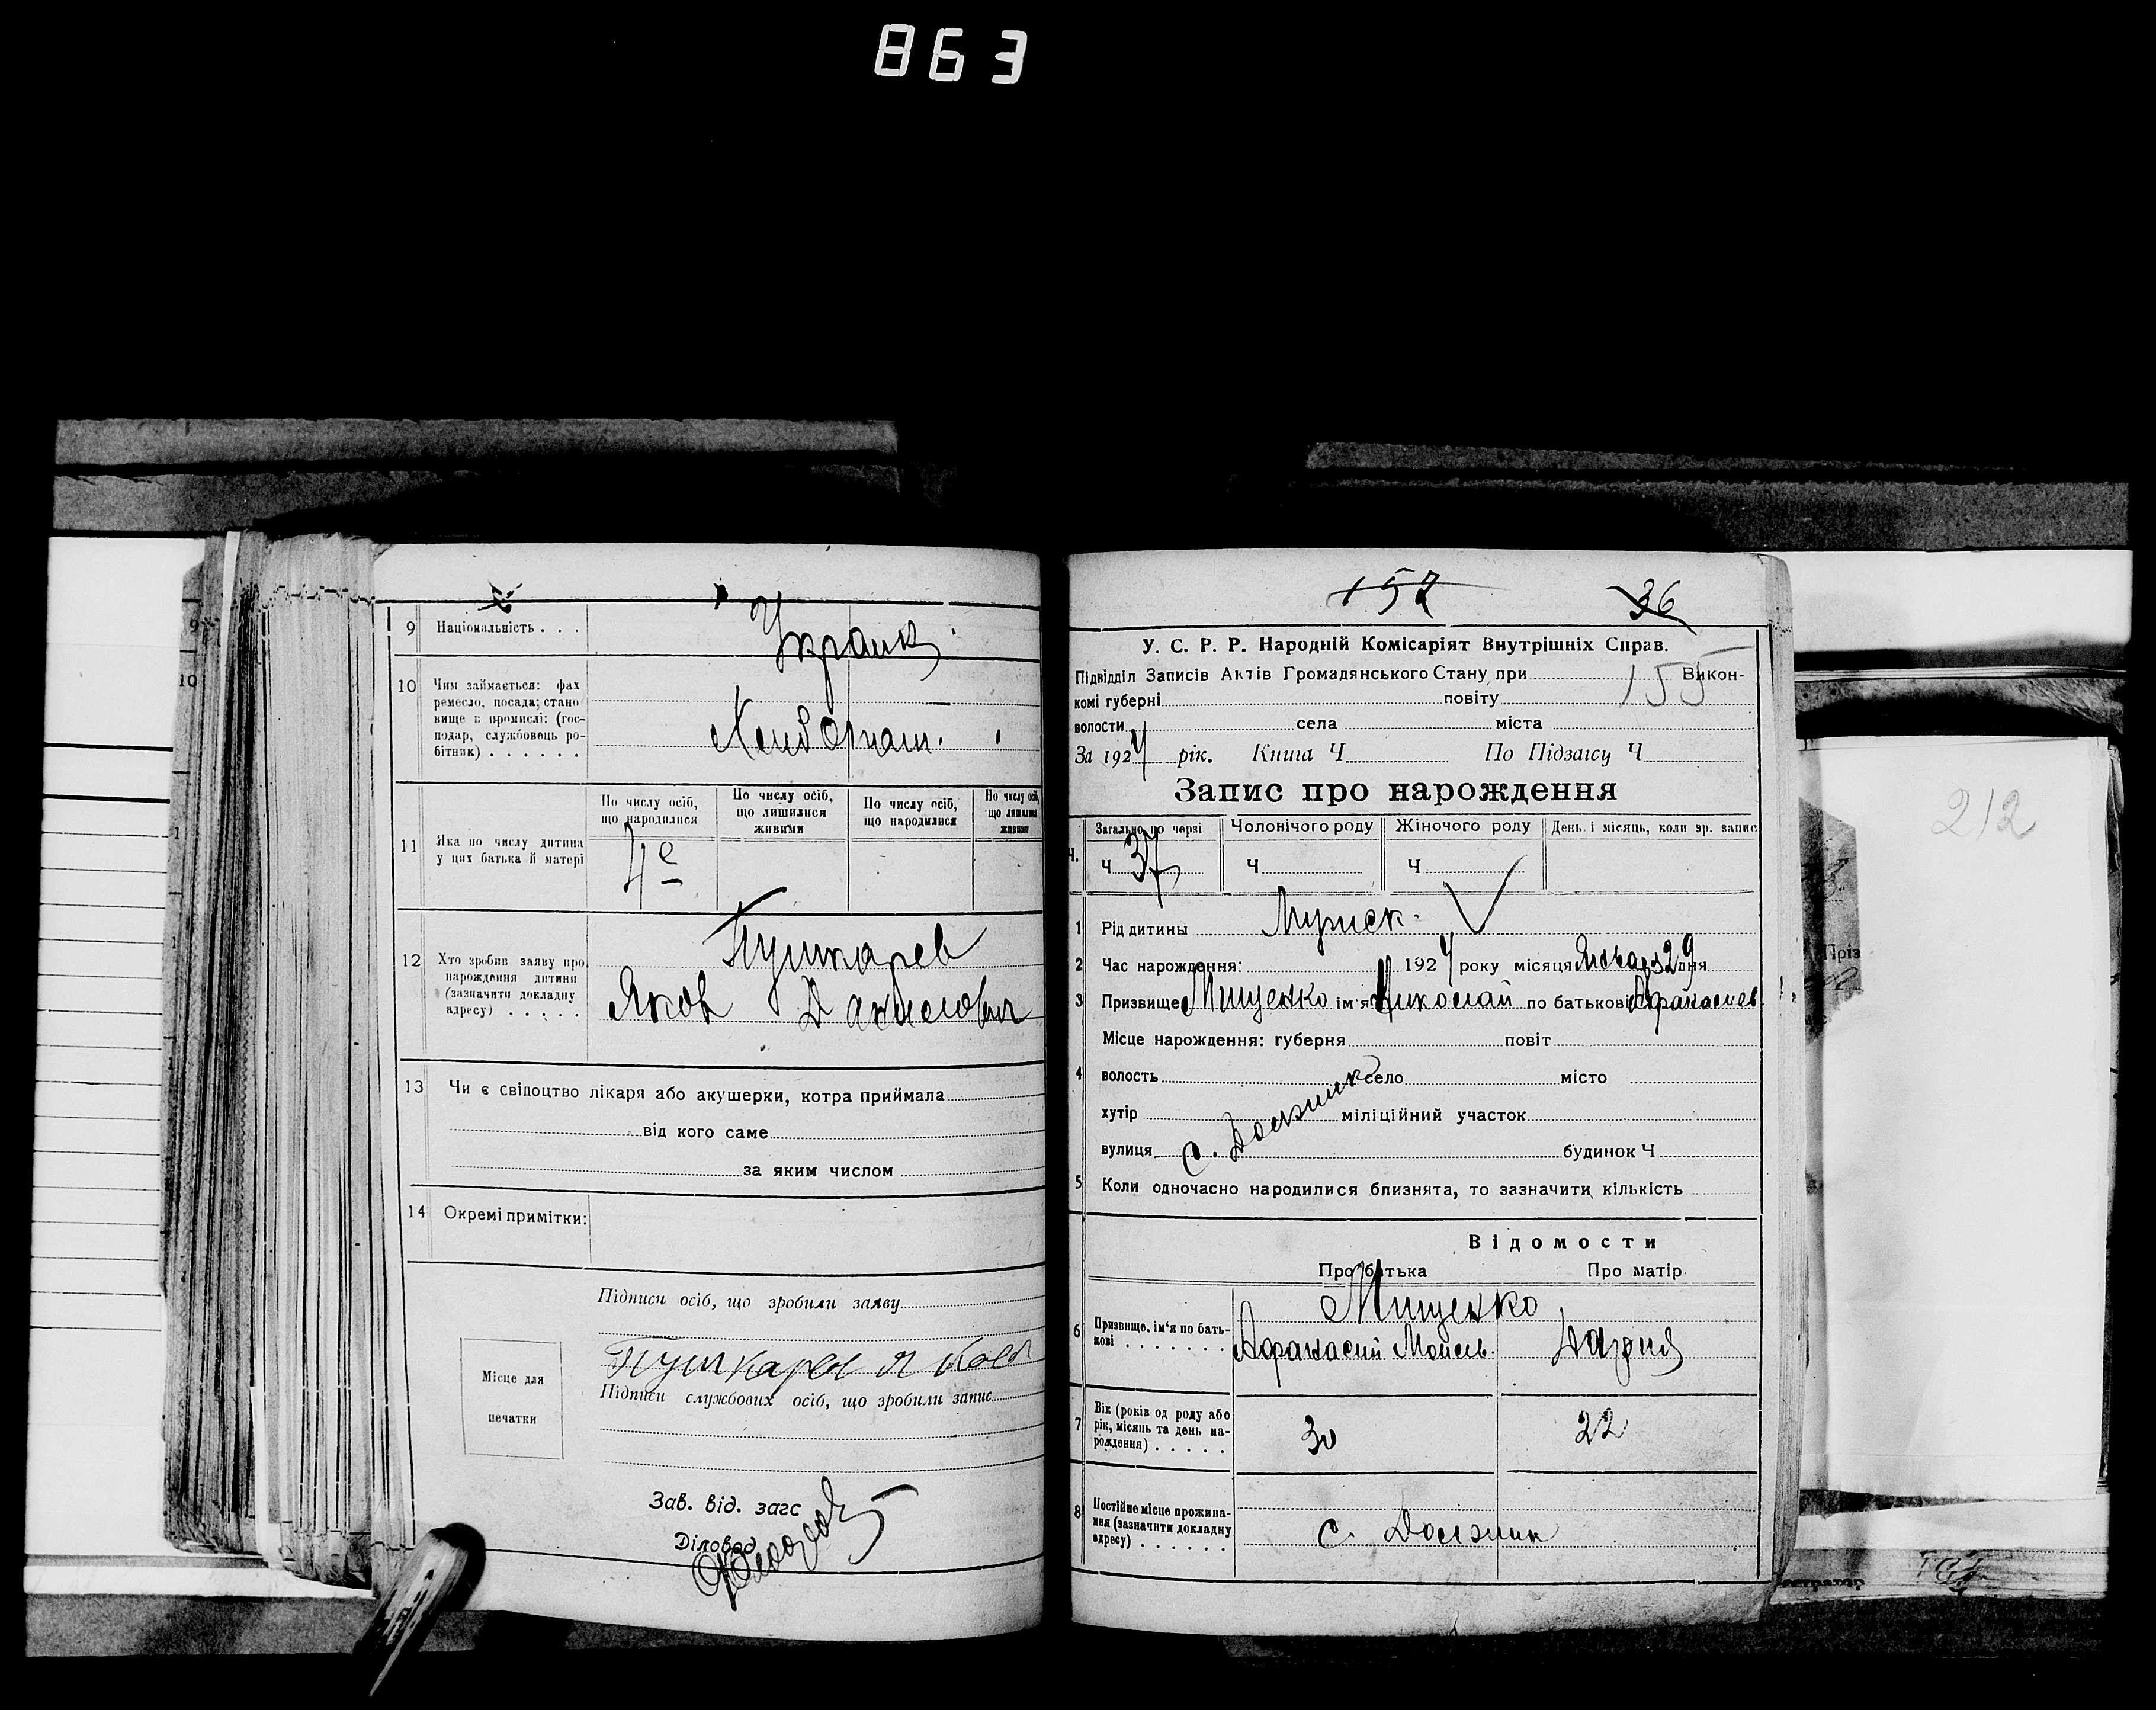 863
9 Національність . . .
Украин
10 Чим займається: фах
ремесло, посада; стано
вище в промислі: (гос-
подар, службовець ро-
бітник) . . . . . .
Хлебопаш.
11 Яка по числу дитина
у цих батька й матері
По числу осіб,
що народилися
По числу осіб,
що лишилися
живими
По числу осіб,
що народилися
По числу осіб,
що лишилися
живими
4е
12 Хто зробив заяву про
нарождення дитини
(зазначити докладну
адресу) . . . . .
Пушкарев
Яков Данилович
13 Чи є свідоцтво лікаря або акушерки, котра приймала
від кого саме
за яким числом
14 Окремі примітки:
Підписи осіб, що зробили заяву
Пушкарев Яков
Підписи службових осіб, що зробили запис
Місце для
печатки
Зав. від. загс
Діловод
157
36
У. С. Р. Р. Народній Комісаріят Внутрішніх Справ.
Підвідділ Записів Актів Громадянського Стану при Викон-
155
комі губерні повіту
волости села міста
За 1924 рік. Книга Ч По Підзагсу Ч
Запис про нарождення
Загально по черзі Чоловічого роду Жіночого роду День і місяць, коли зр. запис
Ч. Ч 37 Ч Ч
1 Рід дитини Мужск.
2 Час нарождення: 1924 року місяця Января 29 дня
3 Призвище Мищенко ім'я Николай по батькові Афанасиев
Місце нарождення: губерня повіт
4 волость село місто
хутір міліційний участок
вулиця с. Должик будинок Ч
5 Коли одночасно народилися близнята, то зазначити кількість
Відомости
Про батька Про матір
6 Призвище, ім'я по бать-
кові . . . . . . .
Мищенко
Афанасий Моисев. Дария
7 Вік (років од роду або
рік, місяць та день на-
рождення) . . . . .
30 22
8 Постійне місце прожива-
ння (зазначити докладну
адресу) . . . . . .
с. Должик
212